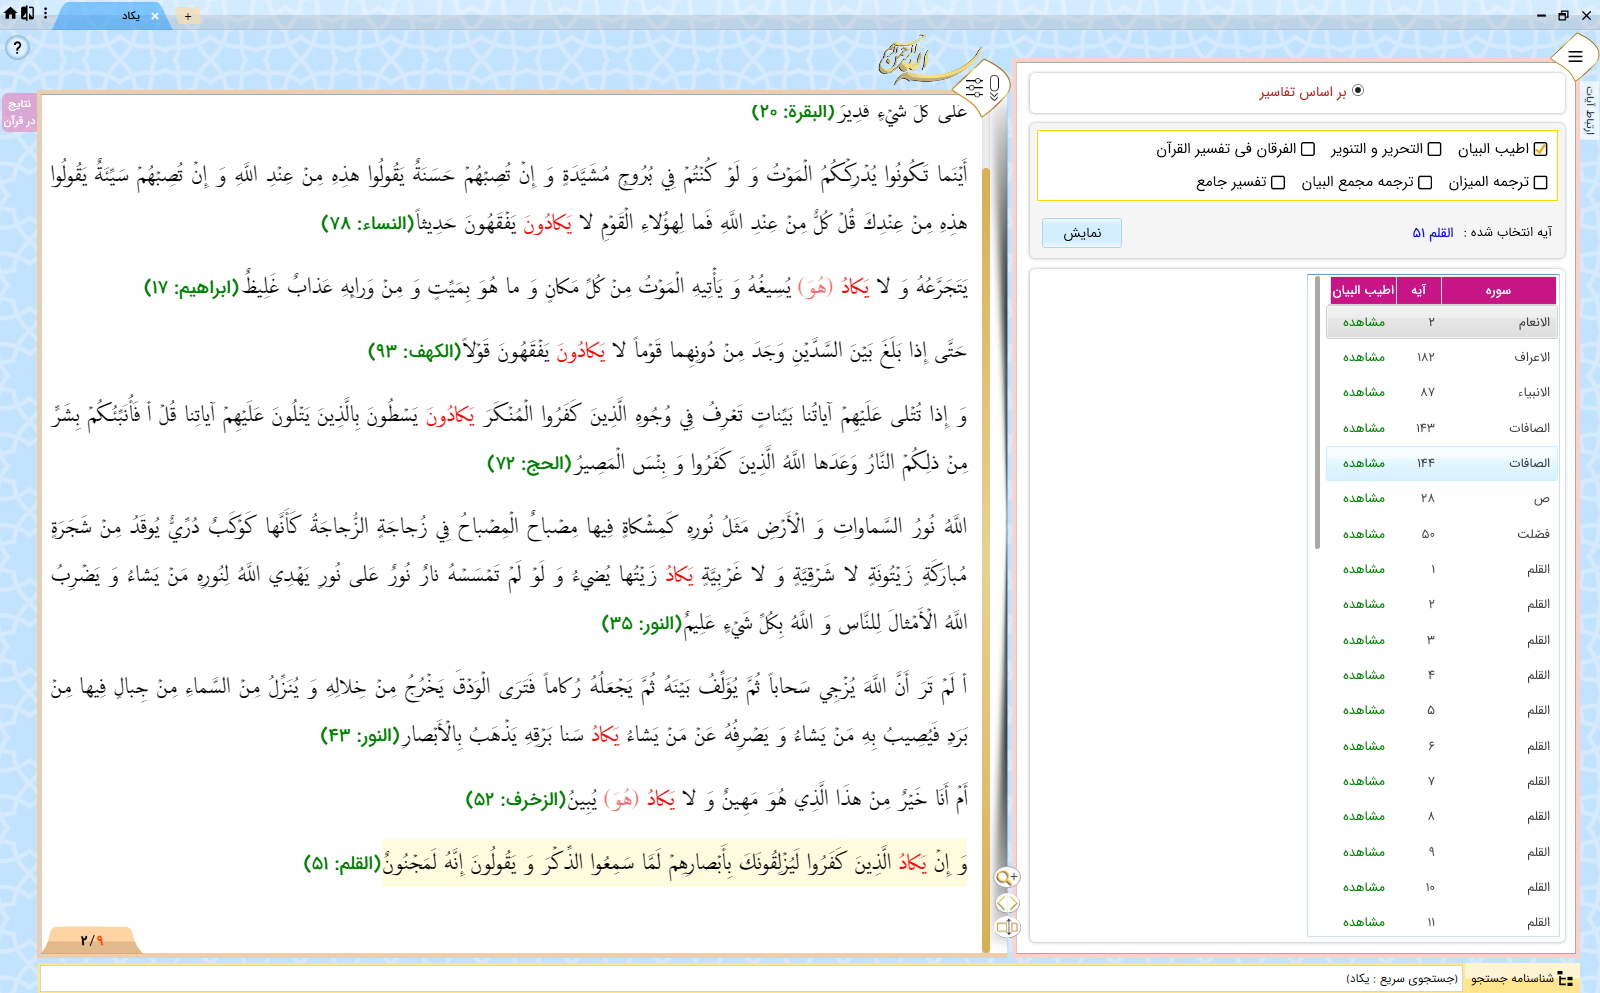 یکاد
+
?
نتایج
در قرآن
ارتباط آیات
عَلى‏ كُلِّ شَيْ‏ءٍ قَدِيرٌ (البقرة: ۲۰)
أَيْنَما تَكُونُوا يُدْرِكْكُمُ الْمَوْتُ وَ لَوْ كُنْتُمْ فِي بُرُوجٍ مُشَيَّدَةٍ وَ إِنْ تُصِبْهُمْ حَسَنَةٌ يَقُولُوا هذِهِ مِنْ عِنْدِ اللَّهِ وَ إِنْ تُصِبْهُمْ سَيِّئَةٌ يَقُولُوا
هذِهِ مِنْ عِنْدِكَ قُلْ كُلٌّ مِنْ عِنْدِ اللَّهِ فَما لِهؤُلاءِ الْقَوْمِ لا يَكادُونَ يَفْقَهُونَ حَدِيثاً (النساء: ۷۸)
يَتَجَرَّعُهُ وَ لا يَكادُ (هُوَ) يُسِيغُهُ وَ يَأْتِيهِ الْمَوْتُ مِنْ كُلِّ مَكانٍ وَ ما هُوَ بِمَيِّتٍ وَ مِنْ وَرائِهِ عَذابٌ غَلِيظٌ (ابراهيم: ۱۷)
حَتَّى إِذا بَلَغَ بَيْنَ السَّدَّيْنِ وَجَدَ مِنْ دُونِهِما قَوْماً لا يَكادُونَ يَفْقَهُونَ قَوْلاً (الكهف: ۹۳)
وَ إِذا تُتْلى‏ عَلَيْهِمْ آياتُنا بَيِّناتٍ تَعْرِفُ فِي وُجُوهِ الَّذِينَ كَفَرُوا الْمُنْكَرَ يَكادُونَ يَسْطُونَ بِالَّذِينَ يَتْلُونَ عَلَيْهِمْ آياتِنا قُلْ أ فَأُنَبِّئُكُمْ بِشَرٍّ
مِنْ ذلِكُمُ النَّارُ وَعَدَها اللَّهُ الَّذِينَ كَفَرُوا وَ بِئْسَ الْمَصِيرُ (الحج: ۷۲)
اللَّهُ نُورُ السَّماواتِ وَ الْأَرْضِ مَثَلُ نُورِهِ كَمِشْكاةٍ فِيها مِصْباحٌ الْمِصْباحُ فِي زُجاجَةٍ الزُّجاجَةُ كَأَنَّها كَوْكَبٌ دُرِّيٌّ يُوقَدُ مِنْ شَجَرَةٍ
مُبارَكَةٍ زَيْتُونَةٍ لا شَرْقِيَّةٍ وَ لا غَرْبِيَّةٍ يَكادُ زَيْتُها يُضِي‏ءُ وَ لَوْ لَمْ تَمْسَسْهُ نارٌ نُورٌ عَلى‏ نُورٍ يَهْدِي اللَّهُ لِنُورِهِ مَنْ يَشاءُ وَ يَضْرِبُ
اللَّهُ الْأَمْثالَ لِلنَّاسِ وَ اللَّهُ بِكُلِّ شَيْ‏ءٍ عَلِيمٌ (النور: ۳۵)
أ لَمْ تَرَ أَنَّ اللَّهَ يُزْجِي سَحاباً ثُمَّ يُؤَلِّفُ بَيْنَهُ ثُمَّ يَجْعَلُهُ رُكاماً فَتَرَى الْوَدْقَ يَخْرُجُ مِنْ خِلالِهِ وَ يُنَزِّلُ مِنَ السَّماءِ مِنْ جِبالٍ فِيها مِنْ
بَرَدٍ فَيُصِيبُ بِهِ مَنْ يَشاءُ وَ يَصْرِفُهُ عَنْ مَنْ يَشاءُ يَكادُ سَنا بَرْقِهِ يَذْهَبُ بِالْأَبْصارِ (النور: ۴۳)
أَمْ أَنَا خَيْرٌ مِنْ هذَا الَّذِي هُوَ مَهِينٌ وَ لا يَكادُ (هُوَ) يُبِينُ (الزخرف: ۵۲)
وَ إِنْ يَكادُ الَّذِينَ كَفَرُوا لَيُزْلِقُونَكَ بِأَبْصارِهِمْ لَمَّا سَمِعُوا الذِّكْرَ وَ يَقُولُونَ إِنَّهُ لَمَجْنُونٌ (القلم: ۵۱)
۲/۹
بر اساس تفاسیر
اطیب البیان التحریر و التنویر الفرقان فی تفسیر القرآن
ترجمه المیزان ترجمه مجمع البیان تفسیر جامع
آیه انتخاب شده : القلم ۵۱ نمایش
سوره آیه اطیب البیان
الانعام ۲ مشاهده
الاعراف ۱۸۲ مشاهده
الانبیاء ۸۷ مشاهده
الصافات ۱۴۳ مشاهده
الصافات ۱۴۴ مشاهده
ص ۲۸ مشاهده
فصّلت ۵۰ مشاهده
القلم ۱ مشاهده
القلم ۲ مشاهده
القلم ۳ مشاهده
القلم ۴ مشاهده
القلم ۵ مشاهده
القلم ۶ مشاهده
القلم ۷ مشاهده
القلم ۸ مشاهده
القلم ۹ مشاهده
القلم ۱۰ مشاهده
القلم ۱۱ مشاهده
شناسنامه جستجو (جستجوی سریع : یکاد)